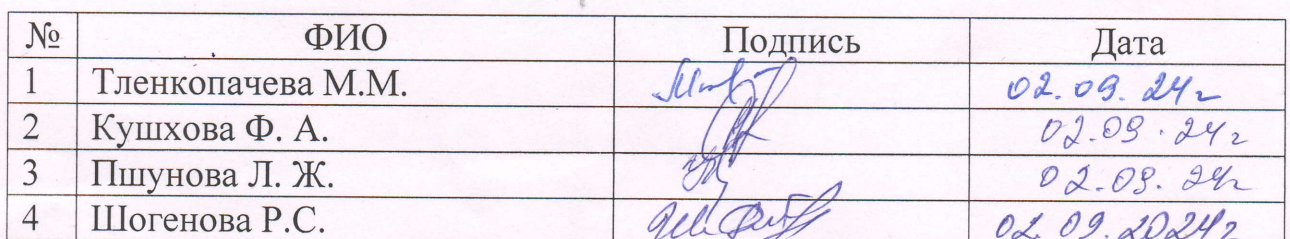 № ФИО Подпись Дата
1 Тленкопачева М.М. 02.09.24г
2 Кушхова Ф. А. 02.09.24г
3 Пшунова Л. Ж. 02.09.24г
4 Шогенова Р.С. 02.09.2024г